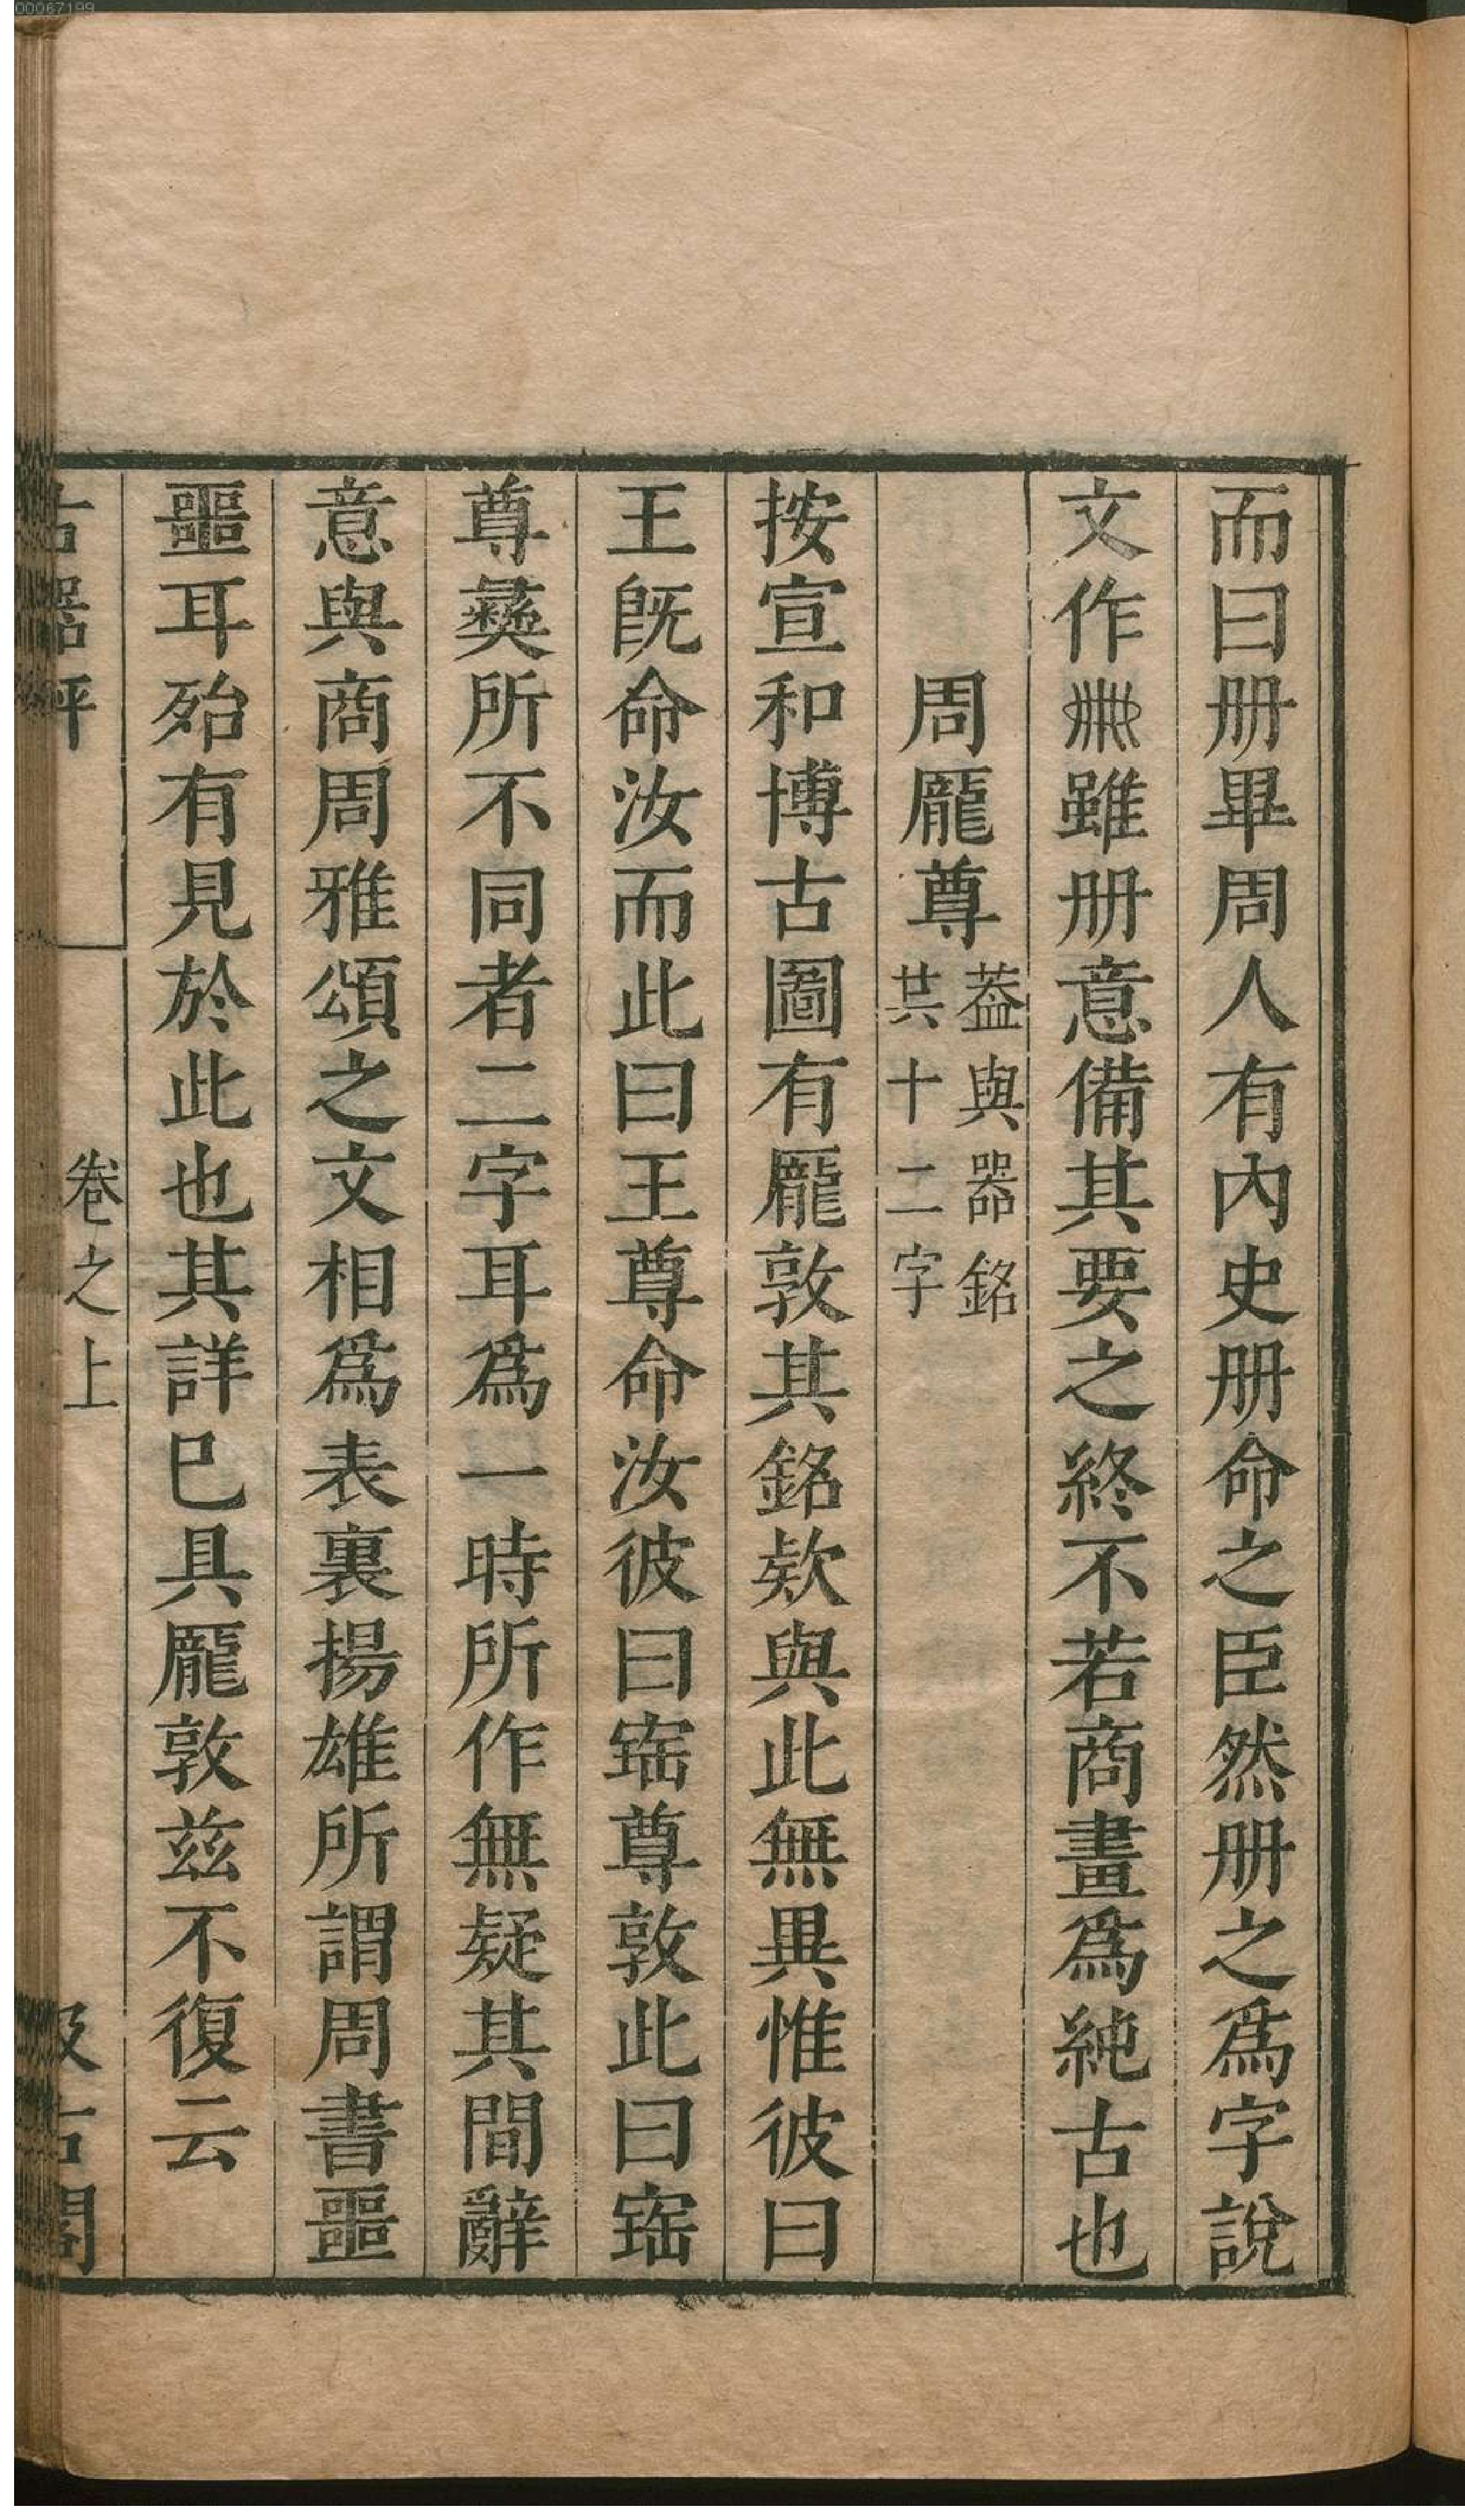 00067199
而曰册畢周人有內史册命之臣然册之爲字說
文作𠕋雖册意備其要之終不若商畫爲純古也
周龎尊蓋與器銘
共十二字
按宣和博古圖有龎敦其銘欵與此無異惟彼曰
王旣命汝而此曰王尊命汝彼曰寚尊敦此曰寚
尊彝所不同者二字耳爲一時所作無疑其間辭
意與商周雅頌之文相爲表裏揚雄所謂周書噩
噩耳殆有見於此也其詳巳具龎敦兹不復云
古器評
卷之上
汲古閣